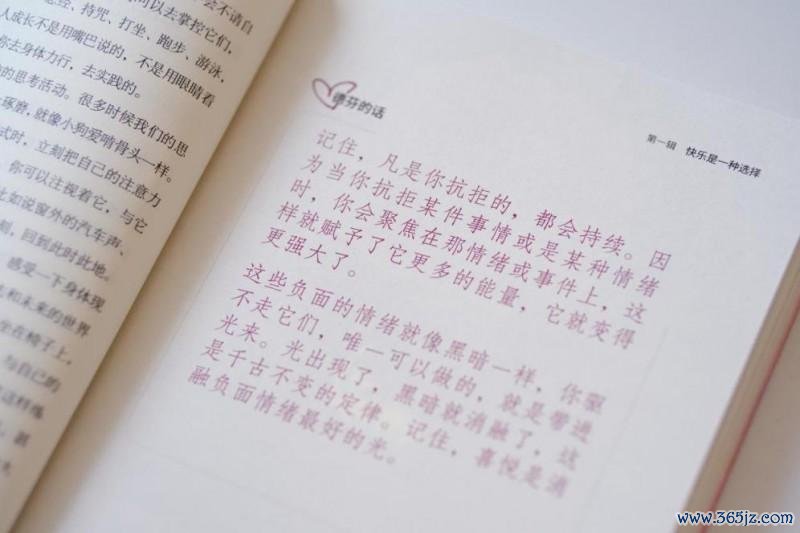 会不请自
经、持咒、打坐、跑步、游泳，
可以去掌控它们，
人成长不是用嘴巴说的，不是用眼睛看
你去身体力行，去实践的。
的思考活动。很多时候我们的思
琢磨，就像小狗爱啃骨头一样。
试时，立刻把自己的注意力
你可以注视着它，与它
比如说窗外的汽车声、
刻，回到此时此地。
感受一下身体现
去和未来的世界
坐在椅子上，
与自己的
德芬的话
第一辑 快乐是一种选择
记住，凡是你抗拒的，都会持续。因
为当你抗拒某件事情或是某种情绪
时，你会聚焦在那情绪或事件上，这
样就赋予了它更多的能量，它就变得
更强大了。
这些负面的情绪就像黑暗一样，你驱
不走它们，唯一可以做的，就是带进
光来。光出现了，黑暗就消融了，这
是千古不变的定律。记住，喜悦是消
融负面情绪最好的光。
www.365jz.com